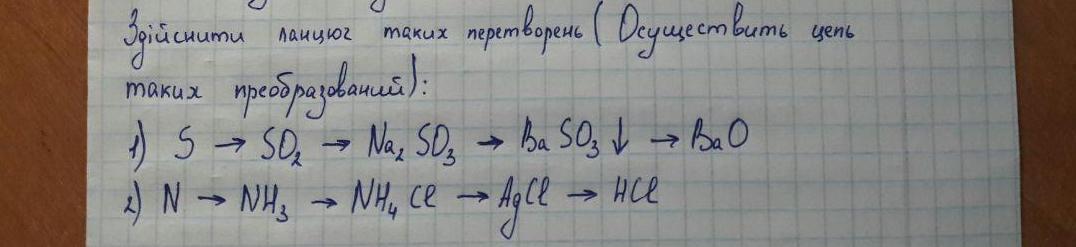 Здійснити ланцюг таких перетворень (Осуществить цепь
таких преобразований):
1) S → SO₂ → Na₂SO₃ → BaSO₃↓ → BaO
2) N → NH₃ → NH₄Cl → AgCl → HCl